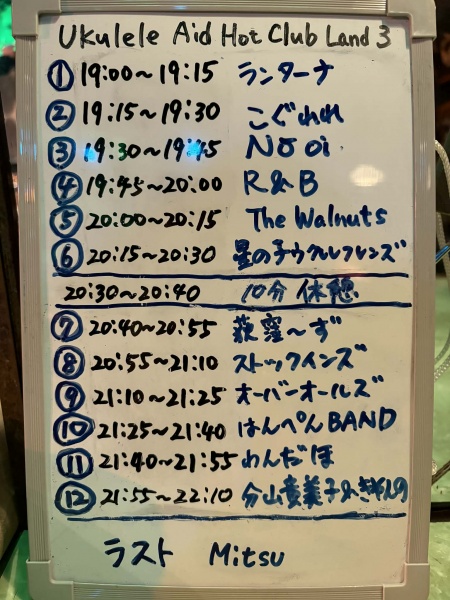 Ukulele Aid Hot Club Land 3
① 19:00〜19:15 ランターナ
② 19:15〜19:30 こぐれれ
③ 19:30〜19:45 Nooi
④ 19:45〜20:00 R&B
⑤ 20:00〜20:15 The Walnuts
⑥ 20:15〜20:30 星の子ウクレレフレンズ
20:30〜20:40 10分 休憩
⑦ 20:40〜20:55 荻窪〜ず
⑧ 20:55〜21:10 ストックインズ
⑨ 21:10〜21:25 オーバーオールズ
⑩ 21:25〜21:40 はんぺんBAND
⑪ 21:40〜21:55 わんだほ
⑫ 21:55〜22:10 分山貴美子&
ラスト Mitsu